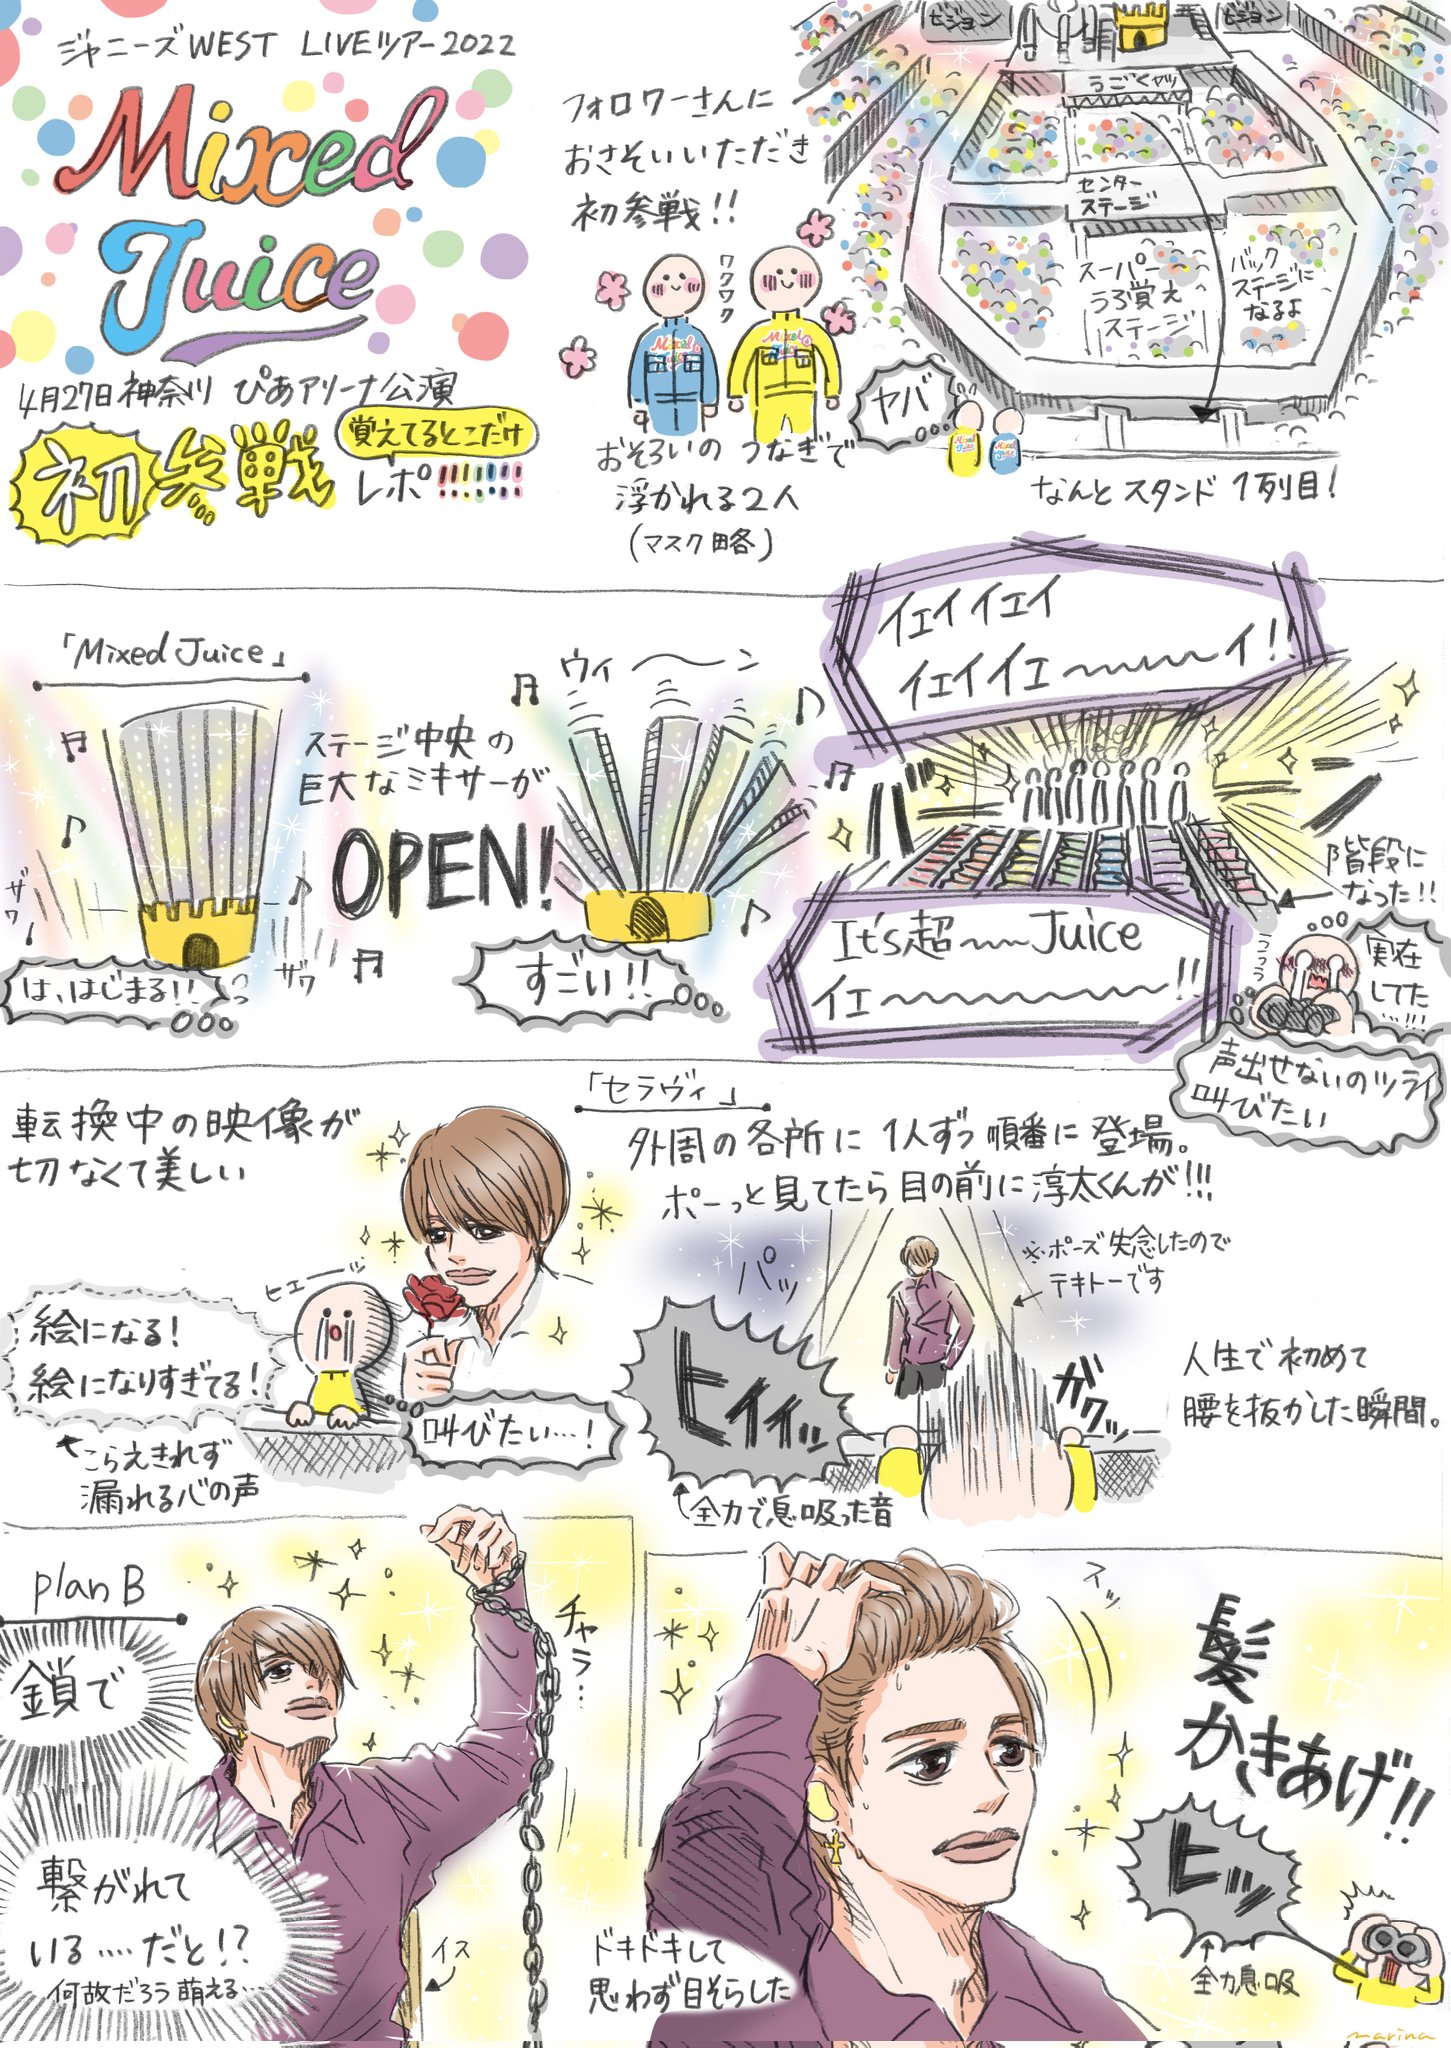 ジャニーズWEST LIVEツアー2022
Mixed
Juice
4月27日 神奈川 ぴあアリーナ公演
初参戦
覚えてるとこだけ
レポ!!!!!!!
フォロワーさんに
おさそいいただき
初参戦!!
ワクワク
Mixed
Juice
Mixed
Juice
おそろいの つなぎで
浮かれる2人
(マスク略)
ビジョン
ビジョン
うごくヤツ
センター
ステージ
スーパー
うろ覚え
ステージ
バック
ステージに
なるよ
ヤバ
Mixed
Juice
Mixed
Juice
なんと スタンド 1列目!
「Mixed Juice」
ザワ
ザワ
は、はじまる!!
ステージ中央の
巨大なミキサーが
OPEN!
ウィ〜〜ン
すごい!!
イェイイェイ
イェイイェ〜〜〜イ!!
バーン
It's超〜〜Juice
イェ〜〜〜〜〜〜〜!!
階段に
なった!!
実在
してた
…!!!
声出せないのツライ
叫びたい
転換中の映像が
切なくて美しい
ヒェーッ
絵になる!
絵になりすぎてる!
こらえきれず
漏れる心の声
叫びたい…!
「セラヴィ」
外周の各所に1人ずつ順番に登場。
ボーっと見てたら目の前に淳太くんが!!!
パッ
※ポーズ失念したので
テキトーです
ヒイイッ
全力で息吸った音
ガクッ
人生で初めて
腰を抜かした瞬間。
plan B
鎖で
繋がれて
いる….だと!?
何故だろう萌える…
チャラ…
イス
スッ
髪
かきあげ!!
ヒッ
全力息吸
ドキドキして
思わず目そらした
marina